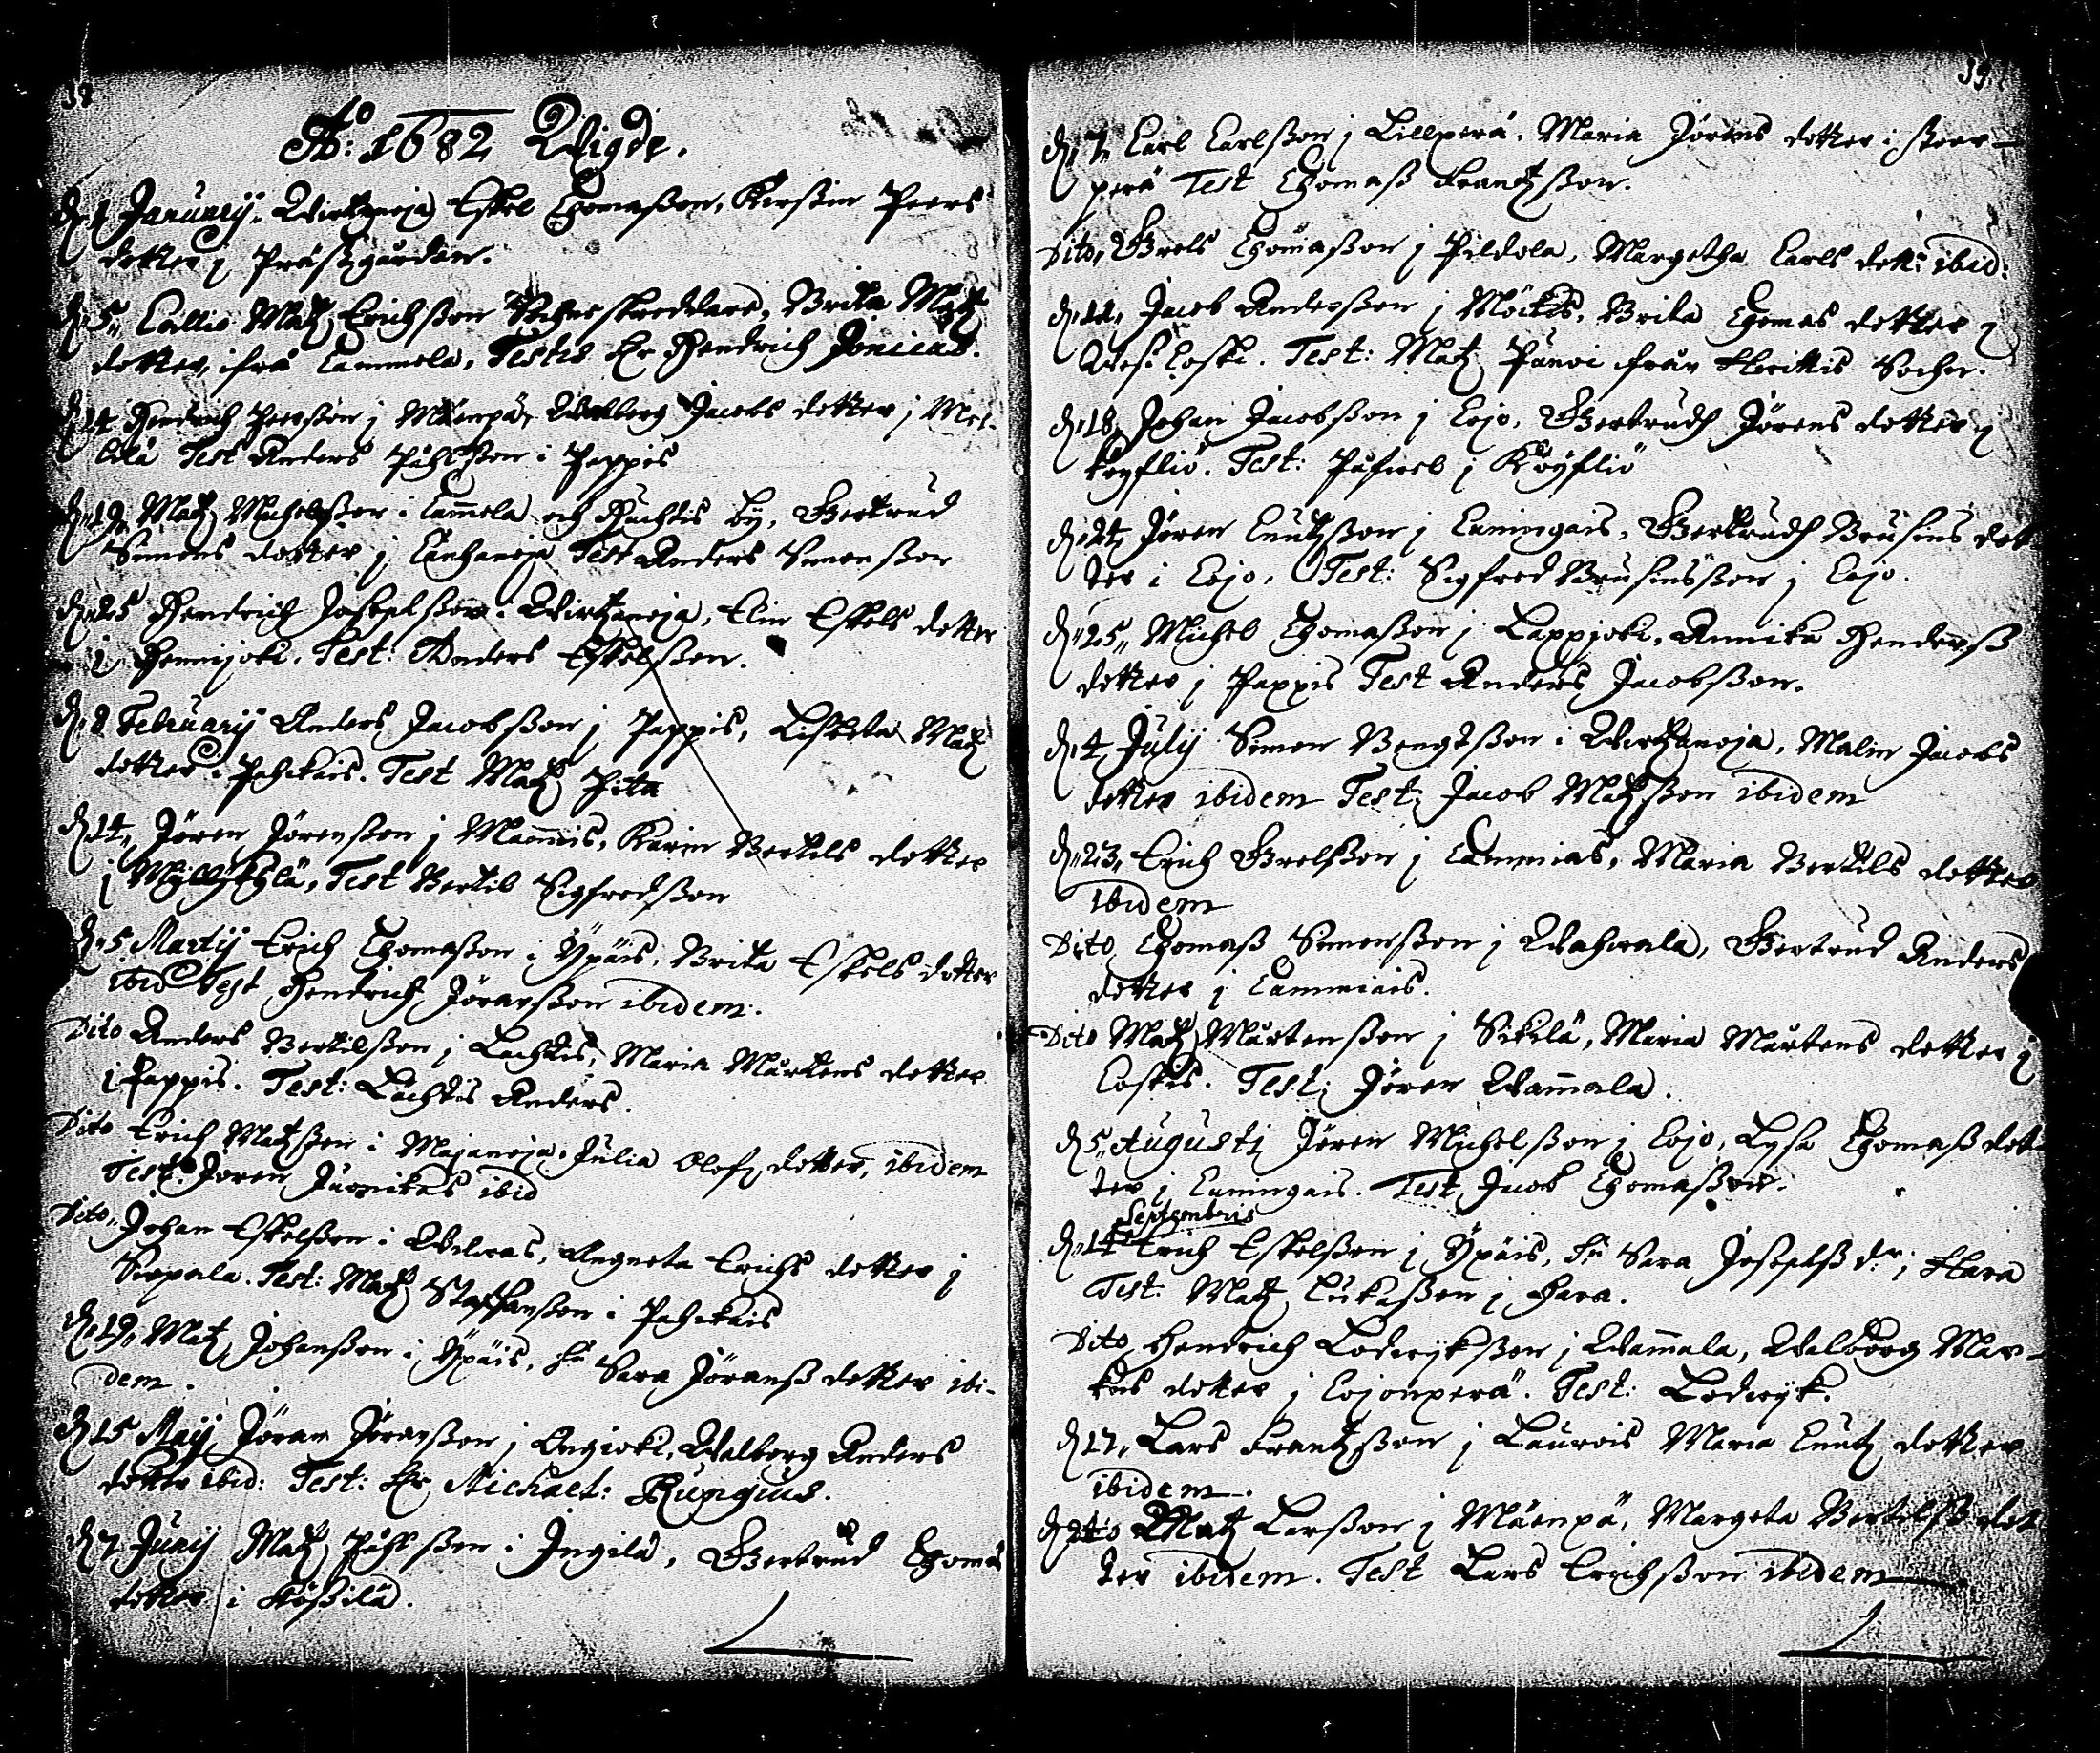 A:o 1682 Wigde.
d. 1 Januarij. Wirtzanoja Eskel Thomaßon, Kirstin Peers
dotter j Prästgården.
d. 5. Callis Matz Erichsson Sochneskreddare, Brita Matz
dotter, ifrå Cammola, Testis Hr Hendrich Jonicas.
d. 14 Hendrich Peersson j Mäenpä, Walborg Jacobs dotter j Mel-
lilä Test Anders Påhlsson i Pappis
d. 19, Matz Michelsson i Cam̄ola och Huchtis by, Gertrud
Simons dotter j Test Anders Simonsson
d. 25 Hendrich Josephsson i Wirtzanoja, Elin Eskels dotter
j Hennijoki. Test: Anders Eskelsson.
d. 2 Februarij Anders Jacobsson j Pappis, Lisbeta Matz
dotter i Pahikais. Test Matz Pita
d. 14, Jören Jörensson j Mannis, Karin Bertils dotter
j Myllykylä, Test Bertil Sigfredsson
d. 5 Martij Erich Thomaßon i Ypäis, Brita Eskels dotter
ibid Test Hendrich Jöransson ibidem.
Dito Anders Bertilsson j Lachtis, Maria Mårtens dotter
j Pappis. Test: Lachtis Anders.
Dito Erich Matzsson i Majanoja, Julia Olofz dotter, ibidem
Test: Jören Juonikas ibid
Dito, Johan Eskelsson i Wilwas, Angneta Erichs dotter j
Sirpala. Test: Matz Staffansson i Pahikais
d. 19, Matz Johansson i Ypäis, hu Sara Jöranß dotter ibi-
dem.
d. 15 Maij Jöran Jöransson j Ongioki, Walborg Anders
dotter ibid: Test: Hr Michael: Rungius.
d. 7 Junij Matz Påhlsson i Jngilä, Gertrud Thomas
dotter i Kößilä.
39.
d. 7, Carl Carlsson j Lillperä, Maria Jörens dotter i stoor-
perä Test Thomaß Frantzsson.
Dito, Brels Thomaßon j Pildola, Margetha Carls dott: ibid:
d. 11, Jacob Andersson j Möckis, Brita Thomas dotter j
Wesikoski. Test: Matz Punoi från Hwittis Sochn.
d. 18, Johan Jacobsson j Lojo, Gertrudh Jörens dotter j
Köyliö. Test: Påhwel j Köyliö
d. 24, Jören Cnutzsson j Caningais, Gertrudh Brusius dot
ter i Lojo, Test: Sigfred Brusiusson j Lojo.
d. 25, Michel Thomaßon j Lappjoki, Annika Hendersß
dotter j Pappis Test Anders Jacobsson.
d. 4 Julij Simon Bengtsson i Wirtzanoja, Malin Jacobs
dotter ibidem Test: Jacob Matzsson ibidem
d. 23, Erich Brelsson j Cammias, Maria Bertils dotter
ibidem
Dito Thomaß Simonsson j Wahwala, Gertrud Anders
dotter j Cammiais.
Dito Matz Mårtensson j Sikilä, Maria Mårtens dotter j
Coskis. Test: Jören Wam̄ala.
d. 5, Augusti Jören Michelsson j Lojo, Lysa Thomaß dot
ter j Caningais. Test Jacob Thomaßon.
Septembris
d. 14 Erich Eskelsson j Ypäis, hu Sara Josephß d:r j Hara
Test: Matz Lukasson j Hara.
Dito, Hendrich Lodwyksson j Wam̄ala, Walborg Mar-
kus dotter j Lojonperä. Test: Lodwyk.
d. 17, Lars Frantzsson j Laurois Maria Cnutz dotter
ibidem.
Dito Matz Larsson j Mäenpä, Margeta Bertilß dot
ter ibidem. Test Lars Erichsson ibidem